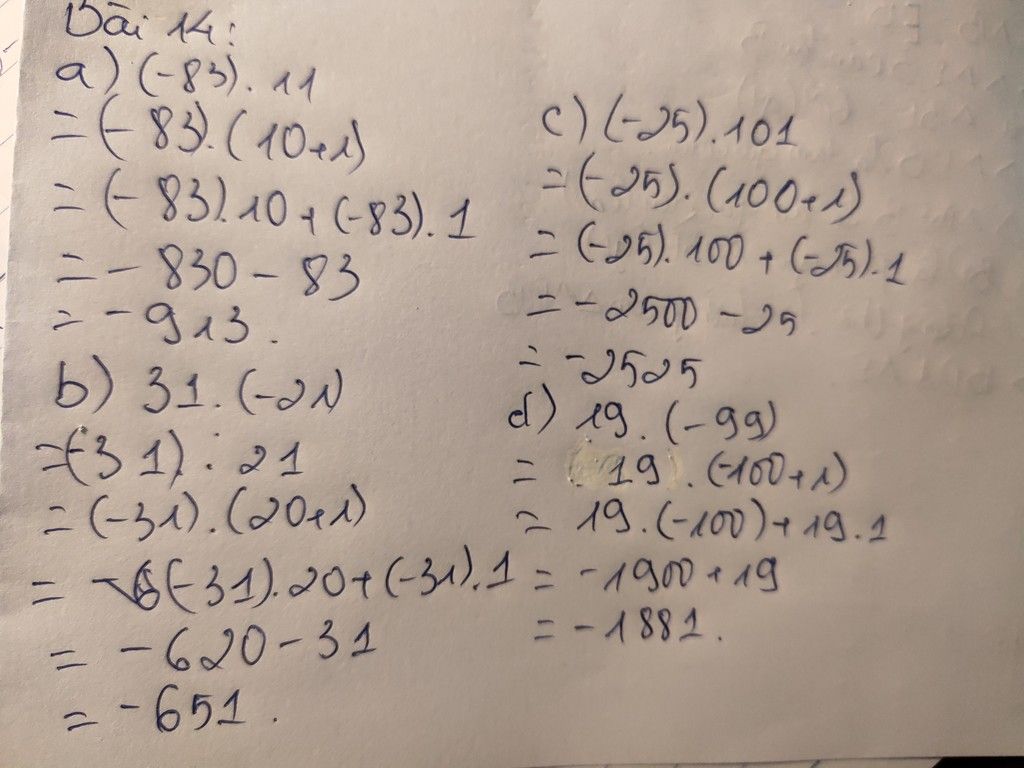 Bài 14:
a) (-83). 11
= (-83).(10+1)
= (-83).10+(-83).1
= -830-83
= -913.
b) 31.(-21)
=(-31).21
= (-31).(20+1)
= (-31).20+(-31).1
= -620-31
= -651.
c) (-25).101
= (-25).(100+1)
= (-25).100+(-25).1
= -2500-25
= -2525
d) 19.(-99)
= 19.(-100+1)
= 19.(-100)+19.1
= -1900+19
= -1881.